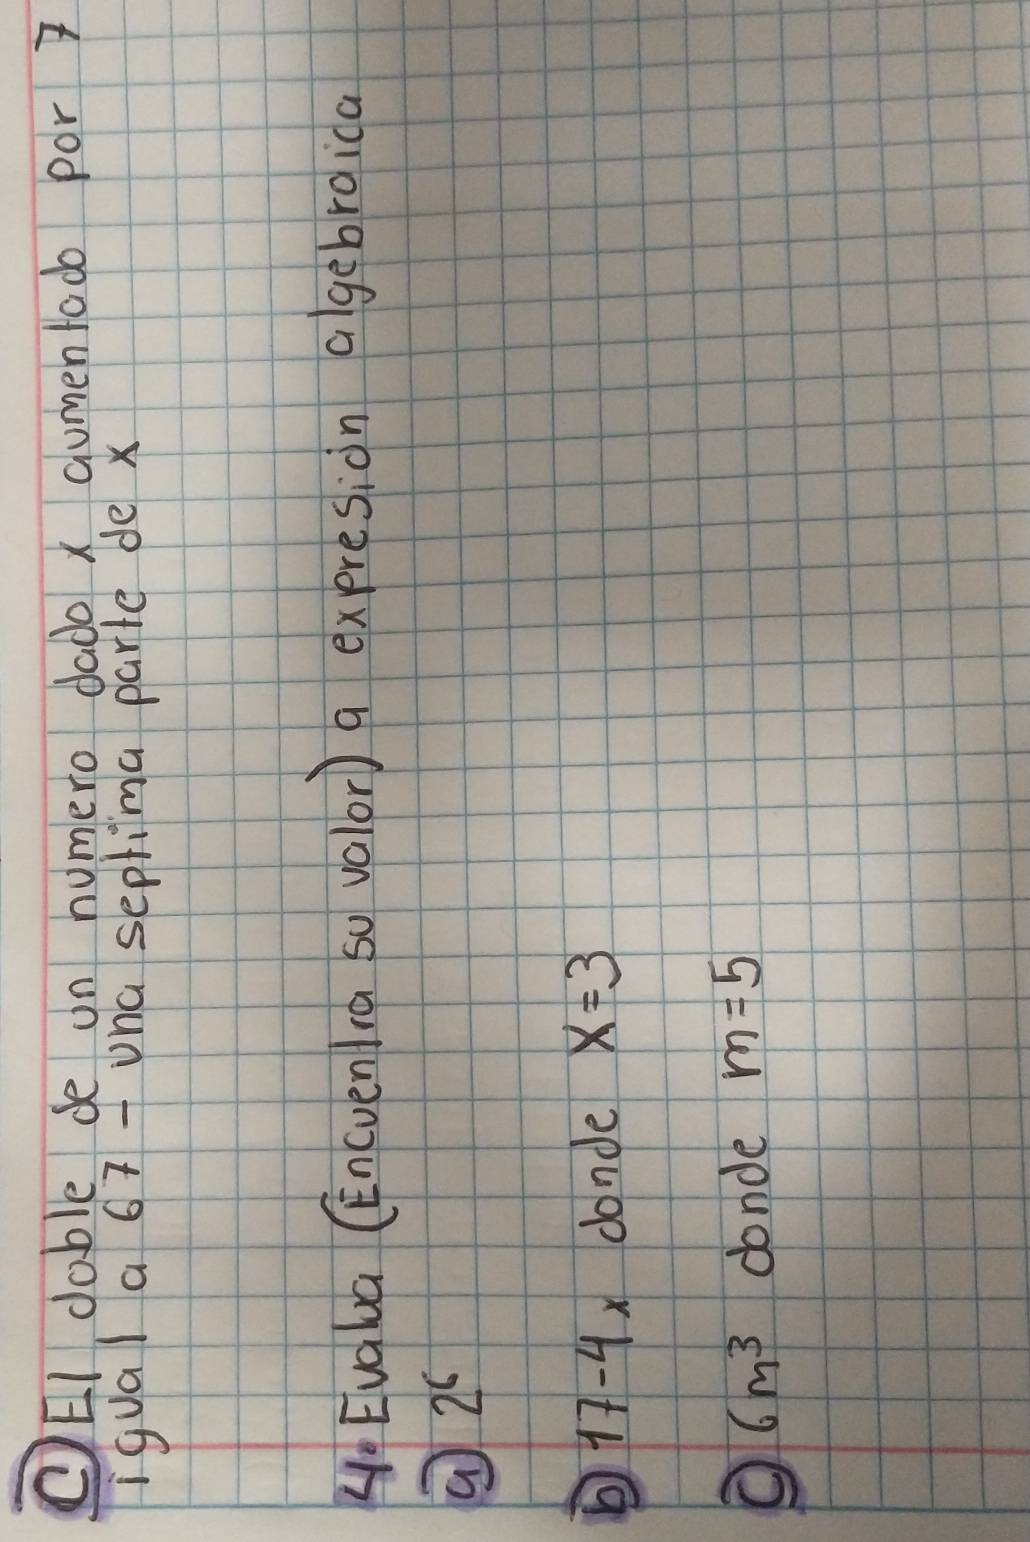 C) El doble de un numero dado x aumentado por 7
igual a 67 - una septima parte de x
4. Evalua (Encuentra su valor) a expresión algebraica
a) 2⁶
b) 17-4x donde x=3
c) 6m³ donde m=5